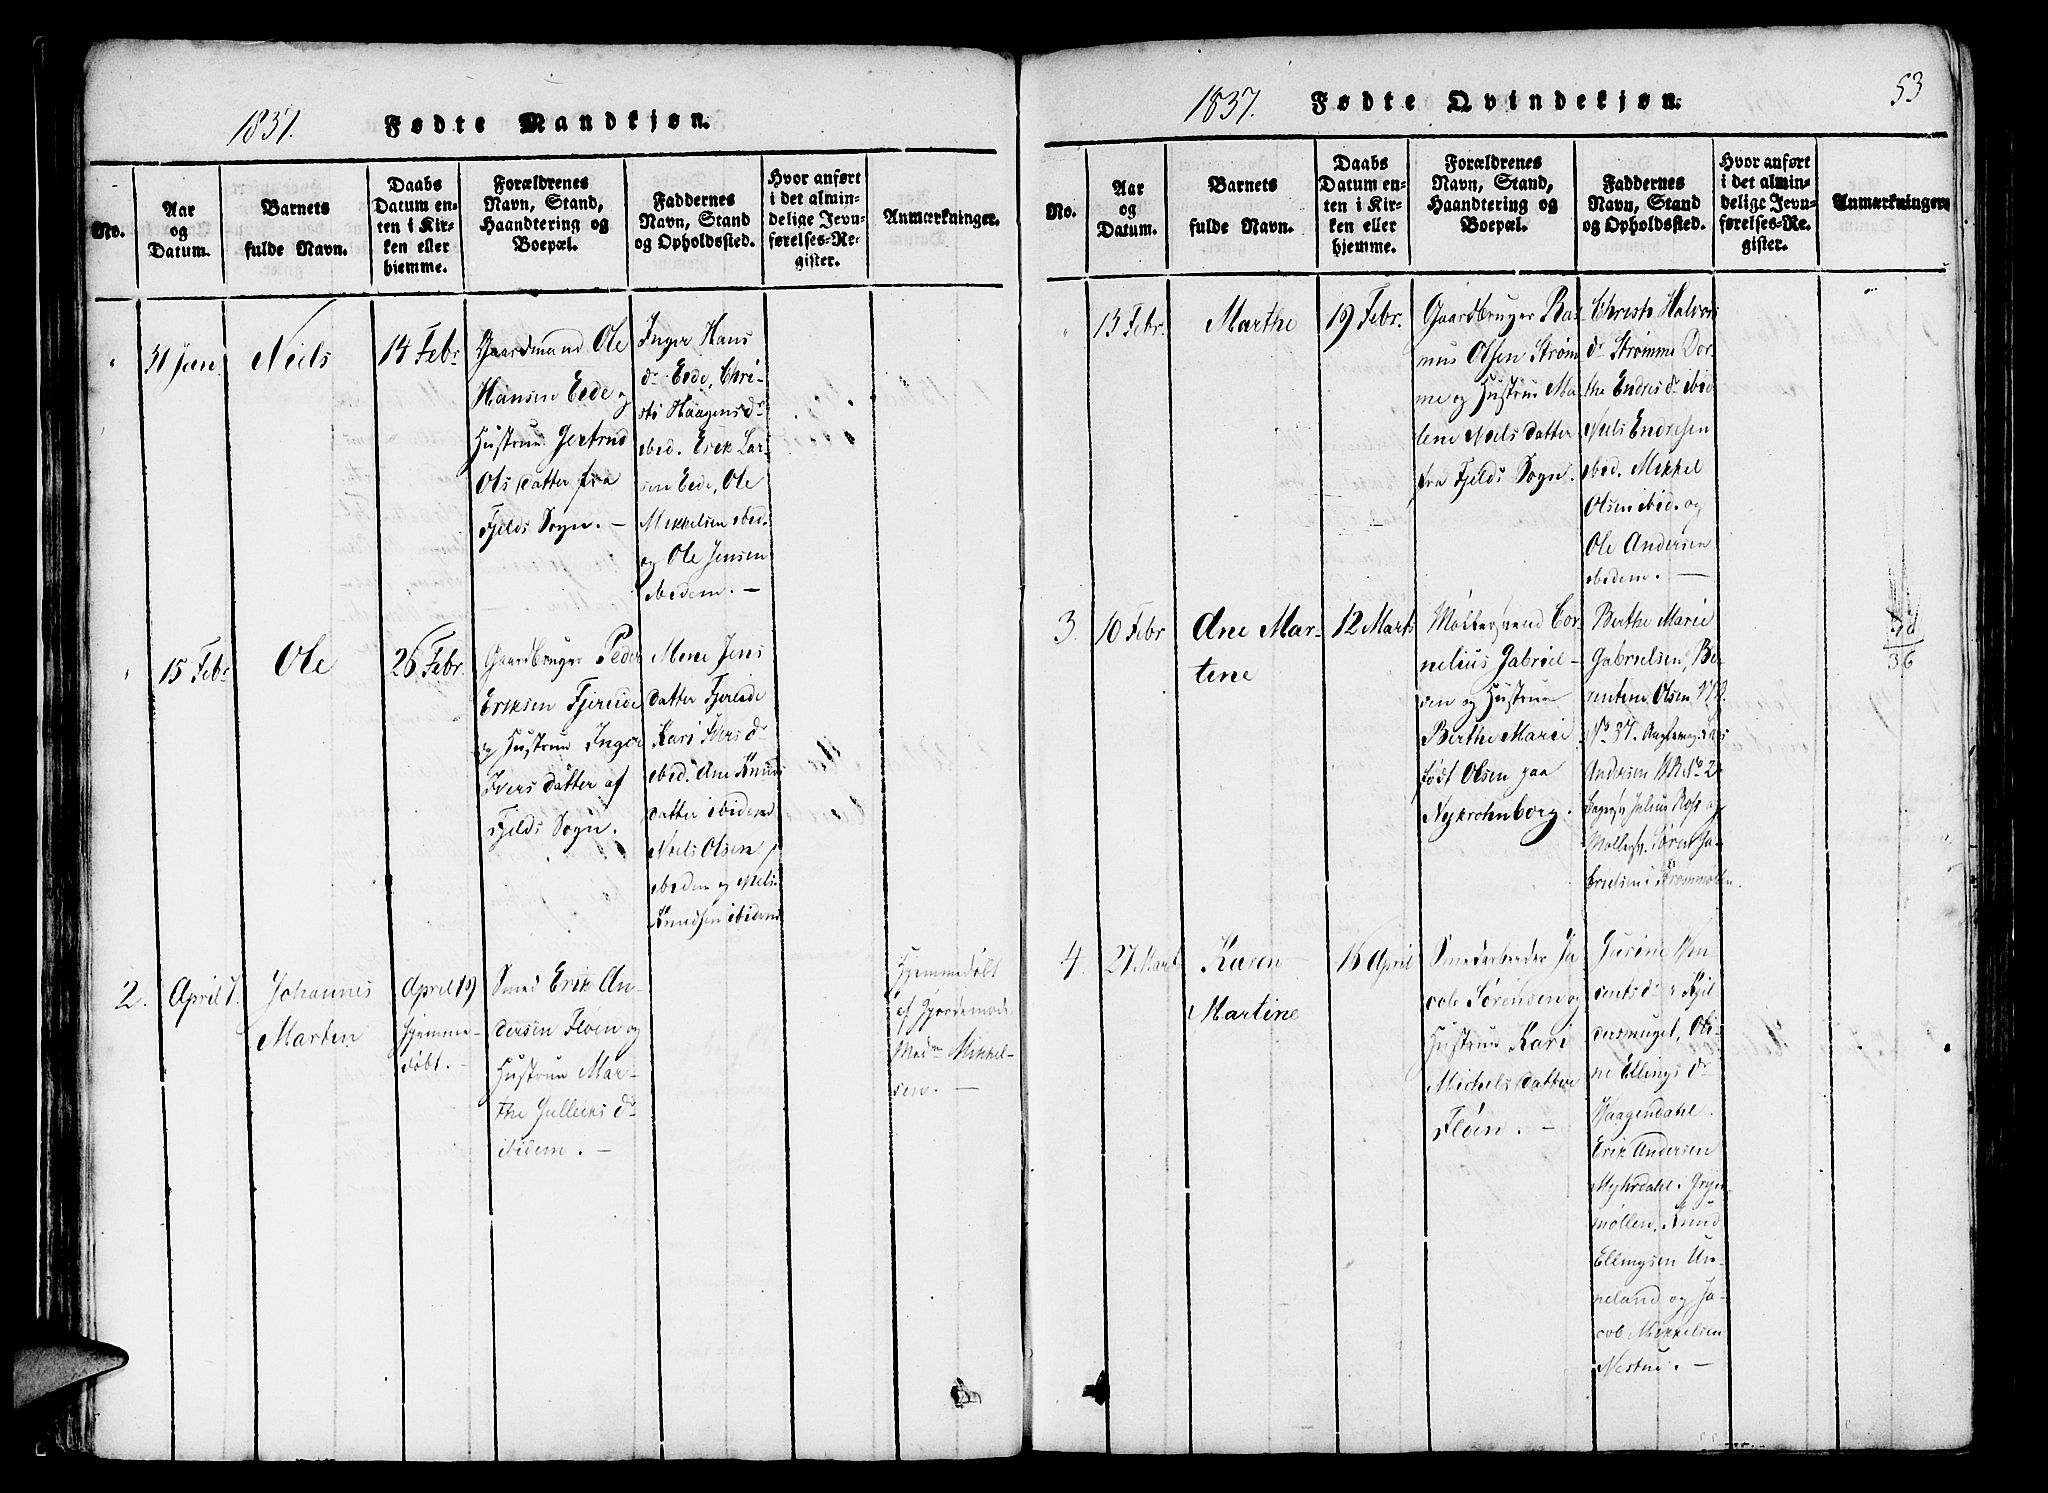 1837.
Fødte Mandkjøn.
No.
Aar
og
Datum.
Barnets
fulde Navn.
Daabs
Datum en-
ten i Kir-
ken eller
hjemme.
Forældrenes
Navn, Stand,
Haandtering og
Boepæl.
Faddernes
Navn, Stand
og Opholdssted.
Hvor anført
i det almin-
delige Jevn-
førelses-Re-
gister.
Anmærkninger.
31 Jan.
Niels
14 Febr.
Gaardmand Ole
Hansen Eede og
Hustrue Gertrud
Ols datter fra
Fjelds Sogn. —
Inger Hans
dr Eede, Chri-
sti Haagens dr
ibid. Erik Lar-
sen Eede, Ole
Mikkelsen ibid.
og Ole Jensen
ibidem. —
15 Febr
Ole
26 Febr.
Gaardbruger Peder
Eriksen Fjereide
og Hustrue Inger
Ivers datter af
Fjelds Sogn.
Mene Jens
datter Fjereide
Kari Ivers dr
ibid. Ane Knuds
datter ibidem
Niels Olsen
ibidem og Nels
Knudsen ibidem
2.
April 7.
Johannes
Marten
April 19
hjemme-
døbt. —
Smed Erik An-
dersen Floen og
Hustrue Mar-
the Gullecks dr
ibidem. —
Hjemmedøbt
af Gjordemode
Madm Mikkel-
sen. —
1837.
Fødte Qvindekjøn.
53
No.
Aar
og
Datum.
Barnets
fulde Navn.
Daabs
Datum en-
ten i Kir-
ken eller
hjemme.
Forældrenes
Navn, Stand,
Haandtering og
Boepæl.
Faddernes
Navn, Stand
og Opholdssted.
Hvor anført
i det almin-
delige Jevn-
førelses-Re-
gister.
Anmærkninger.
13 Febr.
Marthe
19 Febr.
Gaardbruger Ras-
mus Olsen Strøm
me og Hustrue Ma-
lene Niels datter
fra Fjelds Sogn.
Christi Halvors
dr Strømme Dor-
the Endres dr ibid
Niels Endresen
ibid. Mikkel
Olsen ibid. og
Ole Andersen
ibidem. —
3.
10 Febr
Ane Mar-
tine
12 Marts
Møllersvend Cor-
nelius Gabriel-
sen og Hustrue
Berthe Marie
født Olsen paa
Nykrohnborg.
Berthe Marie
Gabrielsen, Be-
rentine Olsen
No 37.
Andersen No 2
Julius og
Søren Ga-
brielsen i Strømmøllen.
36
4.
27 Marts
Karen
Martine
16 April
Smedarbeider Ja
cob Sørensen og
Hustrue Kari
Michels datter
Fløen. —
Gurine Vin
cents dr
dersmuget, Oli-
ne Ellings dr
Haagendahl.
Erik Andersen
Myhrdahl. Gryn
møllen. Knud
Ellingsen Un-
neland og Ja-
cob Mikkelsen
Nestun. —